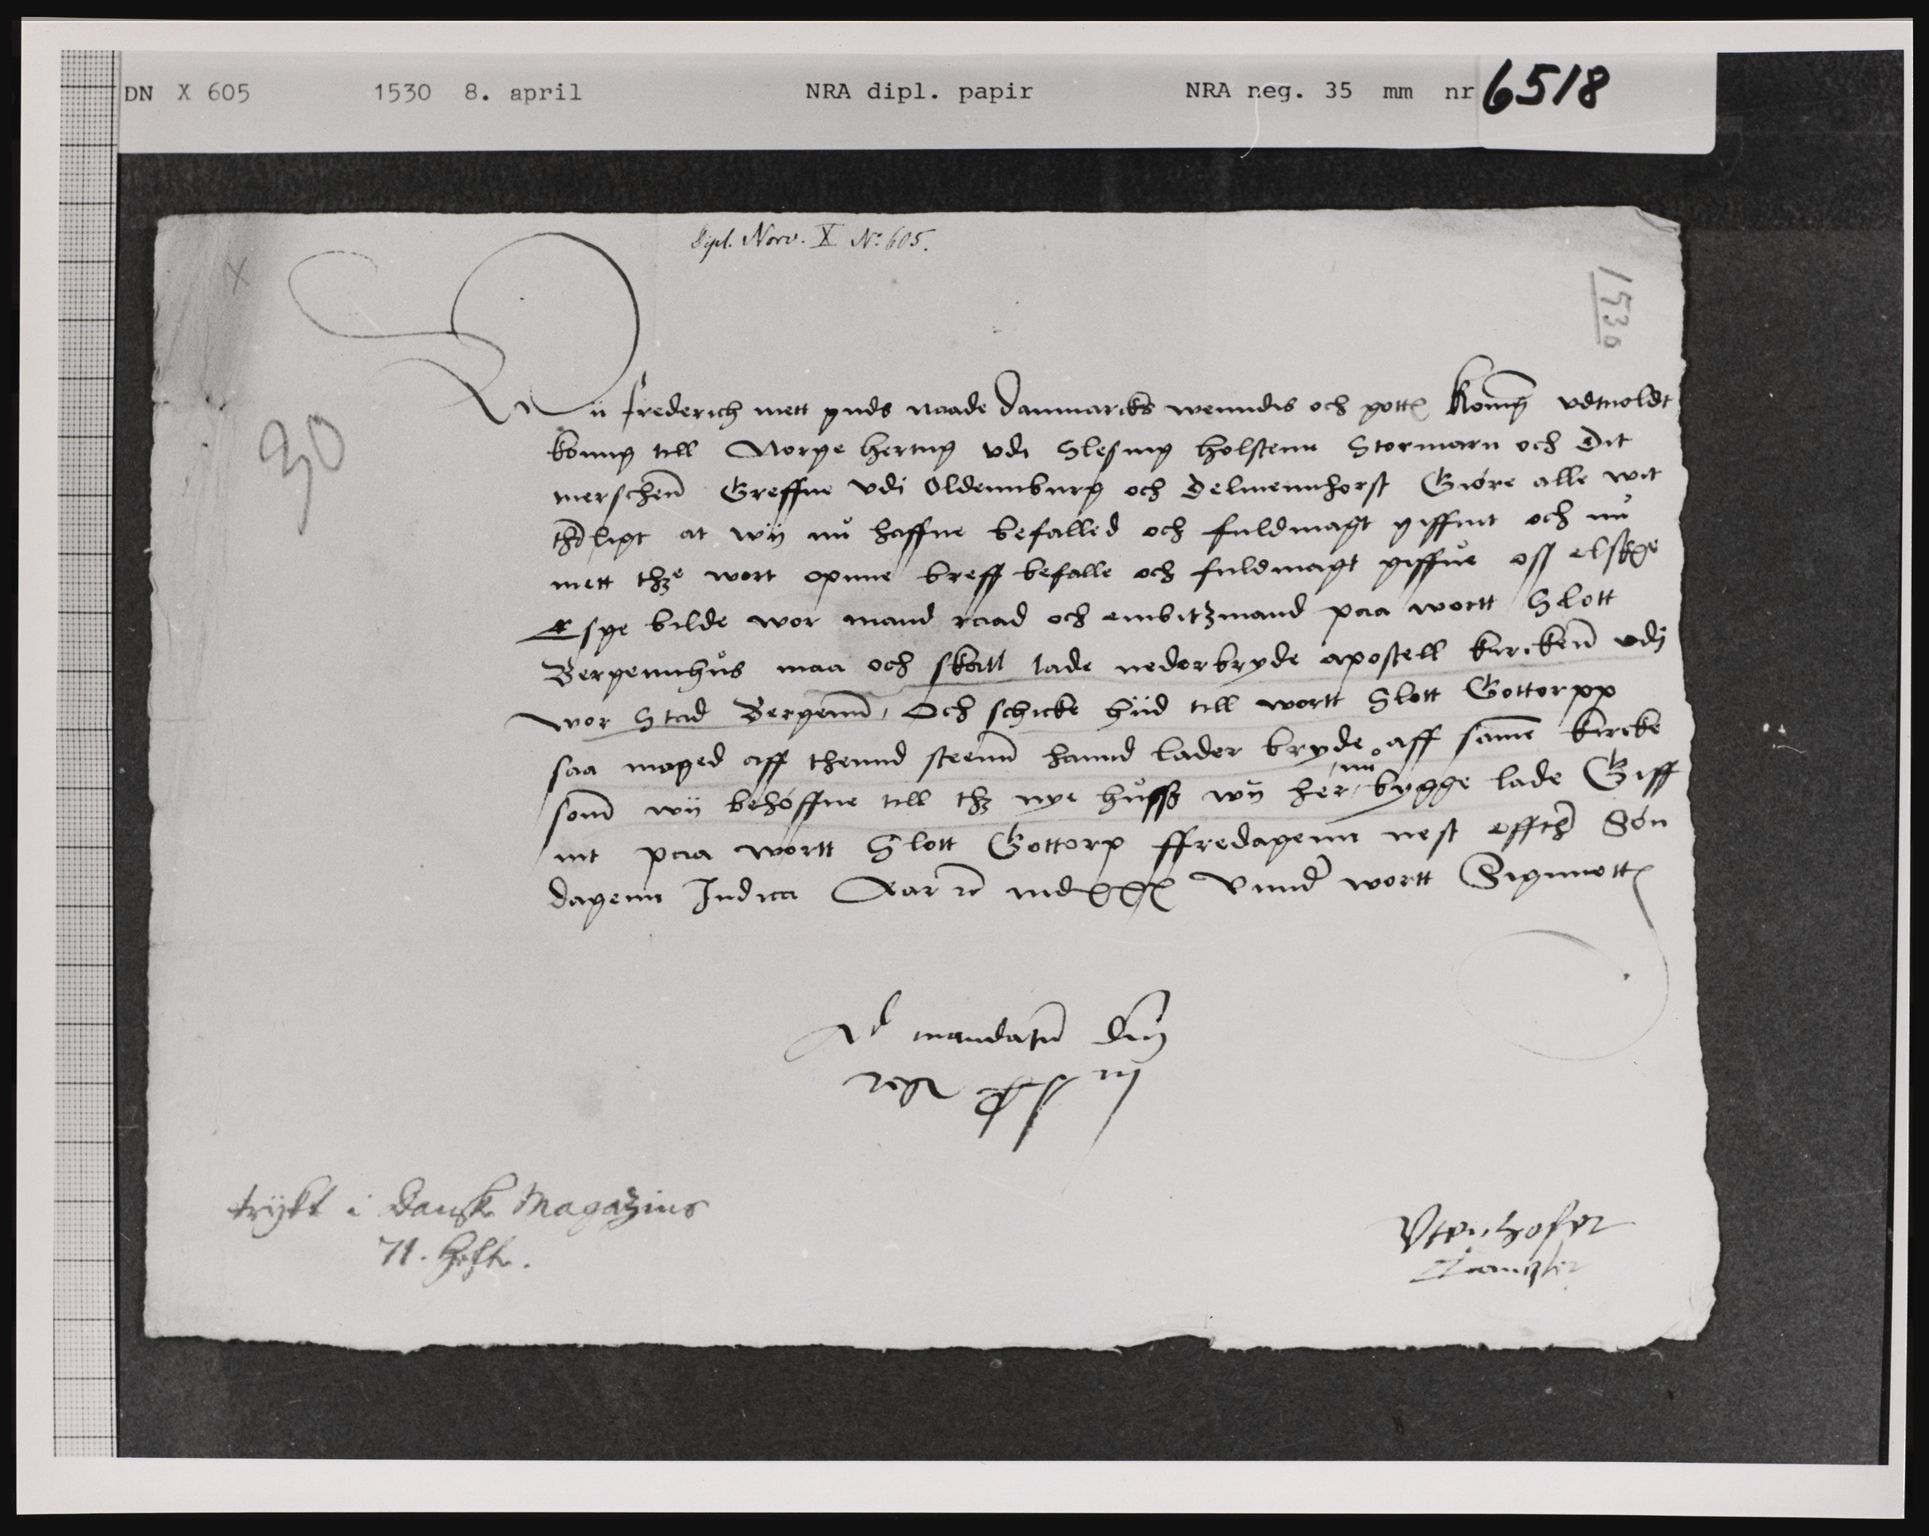 DN X 605 1530 8. april NRA dipl. papir NRA neg. 35 mm nr 6518
Dipl. Norv. X No 605.
1530
30
Wii frederich mett guds naade danmarcks wenndis och gotte Konnig vdtuoldt
konnig till Norge hertug vdi Slesuig holstenn Stormarn och Dit
merschenn Greffue vdi Oldennburg och Delmennhorst Giøre alle wit
therligt at wij nu haffue befalled och fuldmagt giffuit och nu
mett thze wort opnne breff befalle och fuldmagt giffue oss elskge
Eske bilde wor mand raad och embitzmand paa wortt Slott
Bergennhus maa och skall lade nederbryde apostell kirckenn vdij
wor Stad Bergenn, Och schicke hiid till wortt Slott Gottorpp
saa maged aff thennd steenn hannd lader bryde aff samme kircke
som wij behøffue till thz nye husz wij her nu bygge lade Giff
uit paa wortt Slott Gottorp ffredagenn nest effther Søn
dagenn Iudica Aar etc mdxxx Vnnder wortt Signnett
Ad mandatum dni
regis pp in
trykt i Danske Magazins
71. Hefte.
Vtenhofer
Cantzler